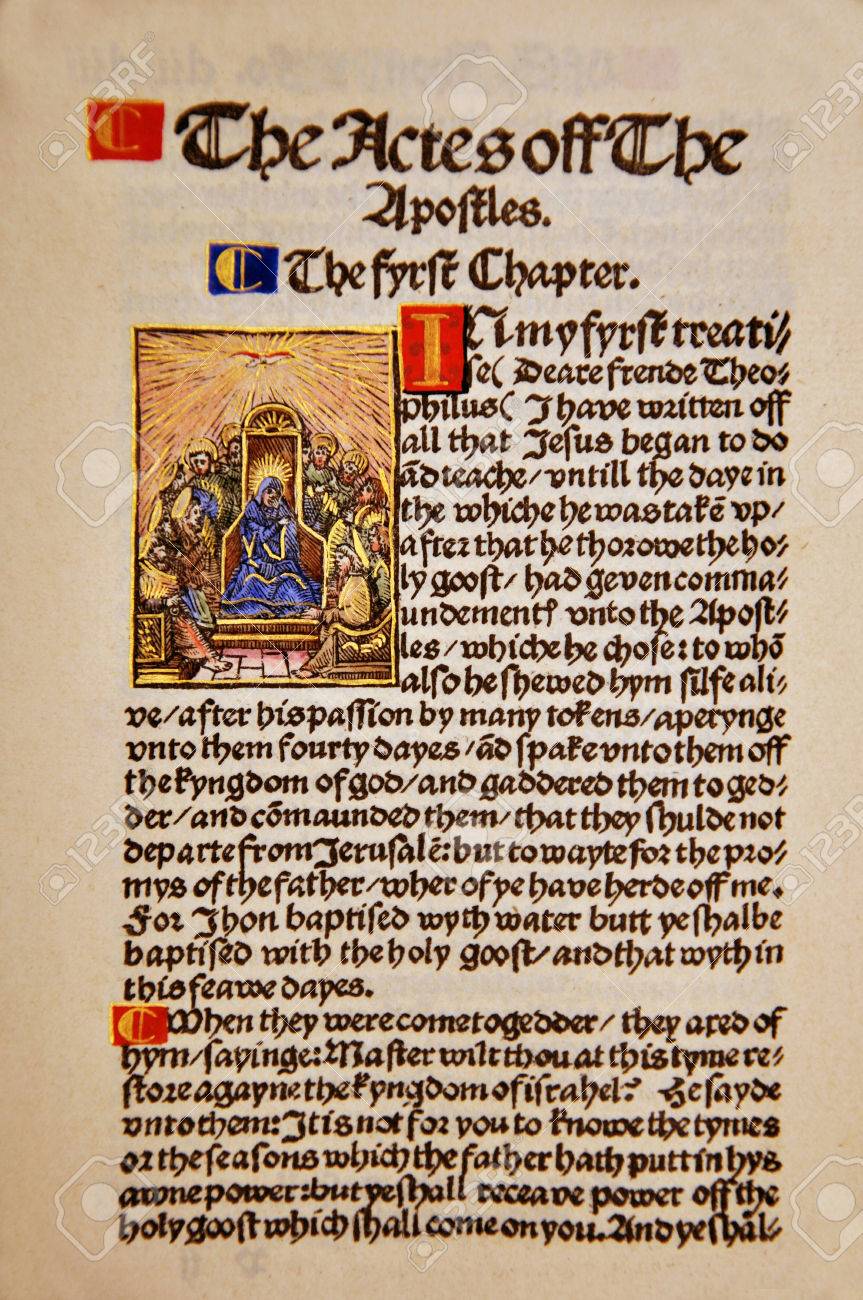 C The Actes off The
Apoſtles.
C The fyrſt Chapter.
IN my fyrſt treati⸗
ſe( Deare frende Theo⸗
philus( I have written off
all that Jeſus began to do
ād teache/ vntill the daye in
the whiche he was takē vp/
after that he thorowe the ho⸗
ly gooſt/ had geven comma⸗
undementꝭ vnto the Apoſt⸗
les/ whiche he choſe: to whō
alſo he ſhewed hym ſilfe ali⸗
ve/ after his paſſion by many tokens/ aperynge
vnto them fourty dayes/ ād ſpake vnto them off
the kyngdom of god/ and gaddered them to ged⸗
der/ and cōmaunded them/ that they ſhulde not
departe from Jeruſalē: but to wayte for the pro⸗
mys of the father/ wher of ye have herde off me.
For Jhon baptiſed wyth water butt ye ſhalbe
baptiſed with the holy gooſt/ and that wyth in
this feawe dayes.
C When they were come togedder/ they axed of
hym/ ſayinge: Maſter wilt thou at this tyme re⸗
ſtore agayne the kyngdom of iſrahel? He ſayde
vnto them: It is not for you to knowe the tymes
or the ſeaſons which the father hath putt in hys
awne power: but ye ſhall receave power off the
holy gooſt which ſhall come on you. And ye ſhāl⸗
123RF